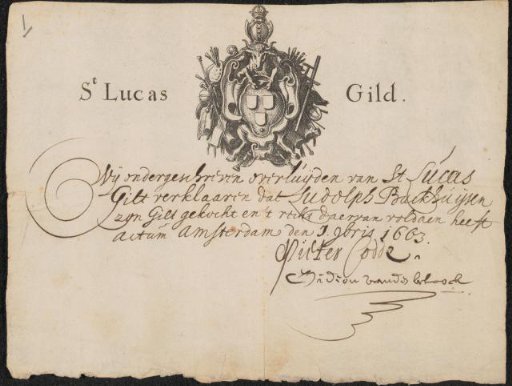 1
St Lucas Gild.
Wij ondergeschreven overluijden van St Lucas
Gilt verklaaren dat Ludolph Backhuijsen
zijn Gilt gekocht en t recht daervan voldaen heeft
actum Amsterdam den 1660
Pieter Codde.